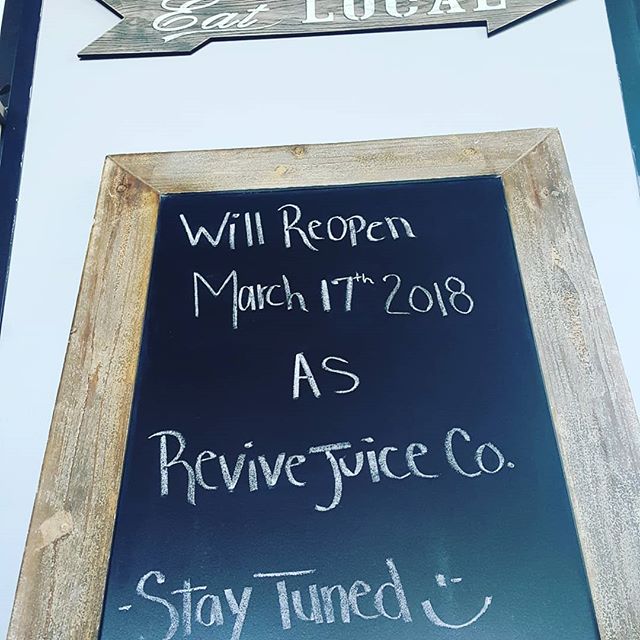 Eat LOCAL
Will Reopen
March 17th 2018
AS
Revive Juice Co.
-Stay Tuned